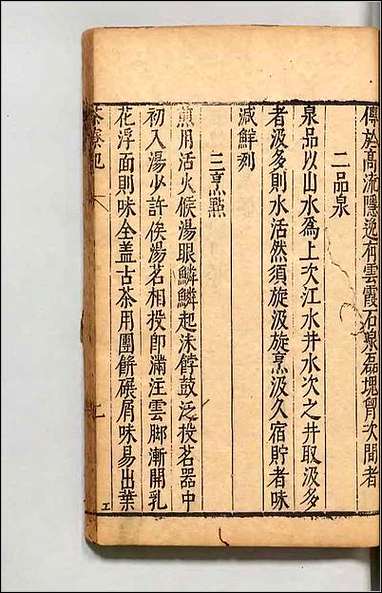 傳於高流隱逸有雲霞石泉磊塊胷次間者
二品泉
泉品以山水爲上次江水井水次之井取汲多
者汲多則水活然須旋汲旋烹汲久宿貯者味
減鮮冽
三烹點
煎用活火候湯眼鱗鱗起沫餑鼓泛投茗器中
初入湯少許俟湯茗相投即滿注雲脚漸開乳
花浮面則味全葢古茶用團餅碾屑味易出葉
茶寮記
二